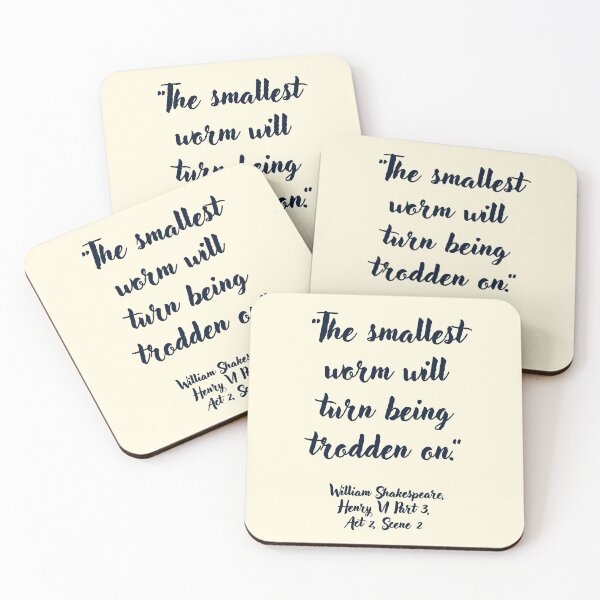 "The smallest
worm will
turn being
on."
"The smallest
worm will
turn being
trodden on."
"The smallest
worm will
turn being
trodden o
William Shakesp
Henry VI P
Act 2, Sce
"The smallest
worm will
turn being
trodden on."
William Shakespeare,
Henry VI Part 3,
Act 2, Scene 2